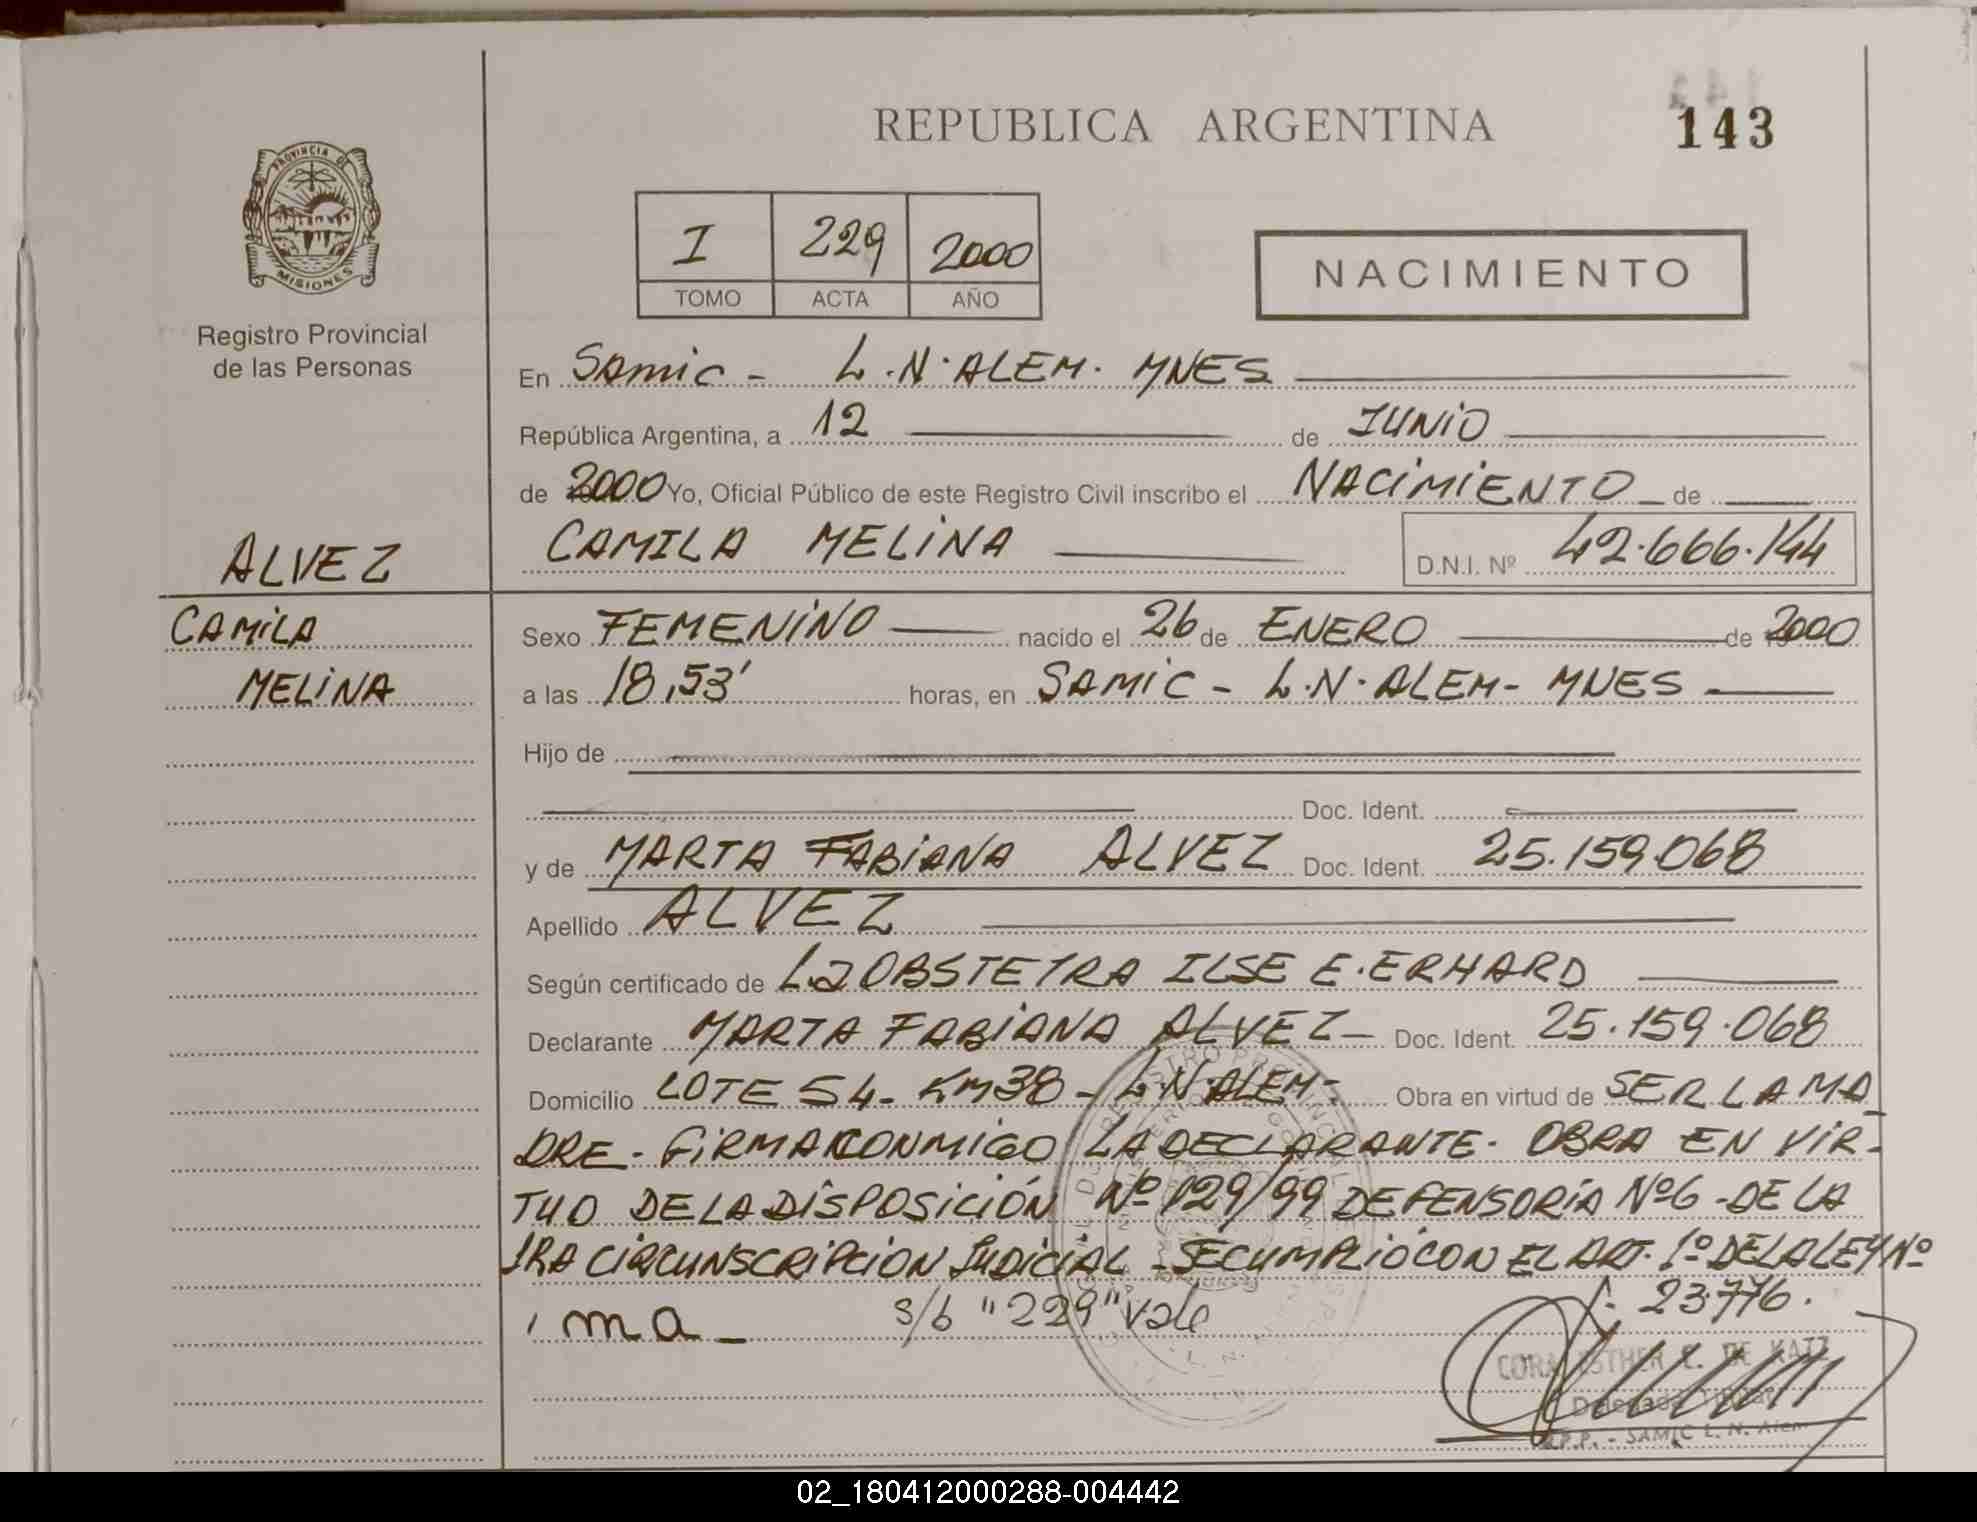 REPUBLICA ARGENTINA
143
PROVINCIA DE
MISIONES
Registro Provincial
de las Personas
I 229 2000
TOMO ACTA AÑO
NACIMIENTO
En SAMIC - L.N. ALEM. MNES
República Argentina, a 12 de JUNIO
de 2000 Yo, Oficial Público de este Registro Civil inscribo el NACIMIENTO de
CAMILA MELINA D.N.I. Nº 42.666.144
ALVEZ
CAMILA
MELINA
Sexo FEMENINO nacido el 26 de ENERO de 2000
a las 18,53' horas, en SAMIC - L.N. ALEM - MNES
Hijo de
Doc. Ident.
y de MARTA FABIANA ALVEZ Doc. Ident. 25.159.068
Apellido ALVEZ
Según certificado de La OBSTETRA ILSE E. ERHARD
Declarante MARTA FABIANA ALVEZ - Doc. Ident. 25.159.068
Domicilio LOTE 54 - KM 38 - L.N. ALEM - Obra en virtud de SER LA MA
DRE - FIRMA CONMIGO LA DECLARANTE - OBRA EN VIR-
TUD DE LA DISPOSICIÓN Nº 129/99 DEFENSORIA Nº 6 - DE LA
1RA CIRCUNSCRIPCION JUDICIAL - SE CUMPLIO CON EL ART. 1º DE LA LEY Nº
23.776.
ma - s/b "229" vale
CORA ESTHER DE KATZ
Delegada Titular
R.P.P. - SAMIC L. N. Alem
02_180412000288-004442